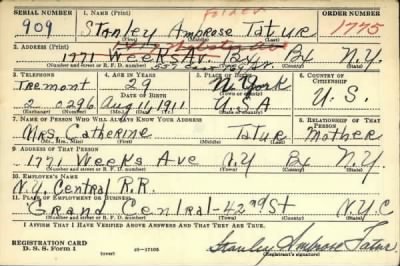 SERIAL NUMBER 1. NAME (Print) ORDER NUMBER
909 Stanley Ambrose Tatur 1775
(First) (Middle) (Last)
2. ADDRESS (Print)
1771 Weeks Av. Bx Bx N.Y.
(Number and street or R. F. D. number) (Town) (County) (State)
3. TELEPHONE 4. AGE IN YEARS 5. PLACE OF BIRTH 6. COUNTRY OF CITIZENSHIP
Tremont 29 N. York
DATE OF BIRTH U.S.
2 0296 Aug 11, 1911 USA
7. NAME OF PERSON WHO WILL ALWAYS KNOW YOUR ADDRESS 8. RELATIONSHIP OF THAT PERSON
Mrs. Catherine Tatur Mother
(Mr., Mrs., Miss) (First) (Middle) (Last)
9. ADDRESS OF THAT PERSON
1771 Weeks Ave N.Y Bx N.Y.
(Number and street or R. F. D. number) (Town) (County) (State)
10. EMPLOYER'S NAME
N.Y. Central R.R.
11. PLACE OF EMPLOYMENT OR BUSINESS
Grand Central-42nd St N.Y.C
(Number and street or R. F. D. number) (Town) (County) (State)
I AFFIRM THAT I HAVE VERIFIED ABOVE ANSWERS AND THAT THEY ARE TRUE.
REGISTRATION CARD
D. S. S. Form 1 (over) 16—17105 Stanley Ambrose Tatur
(Registrant's signature)